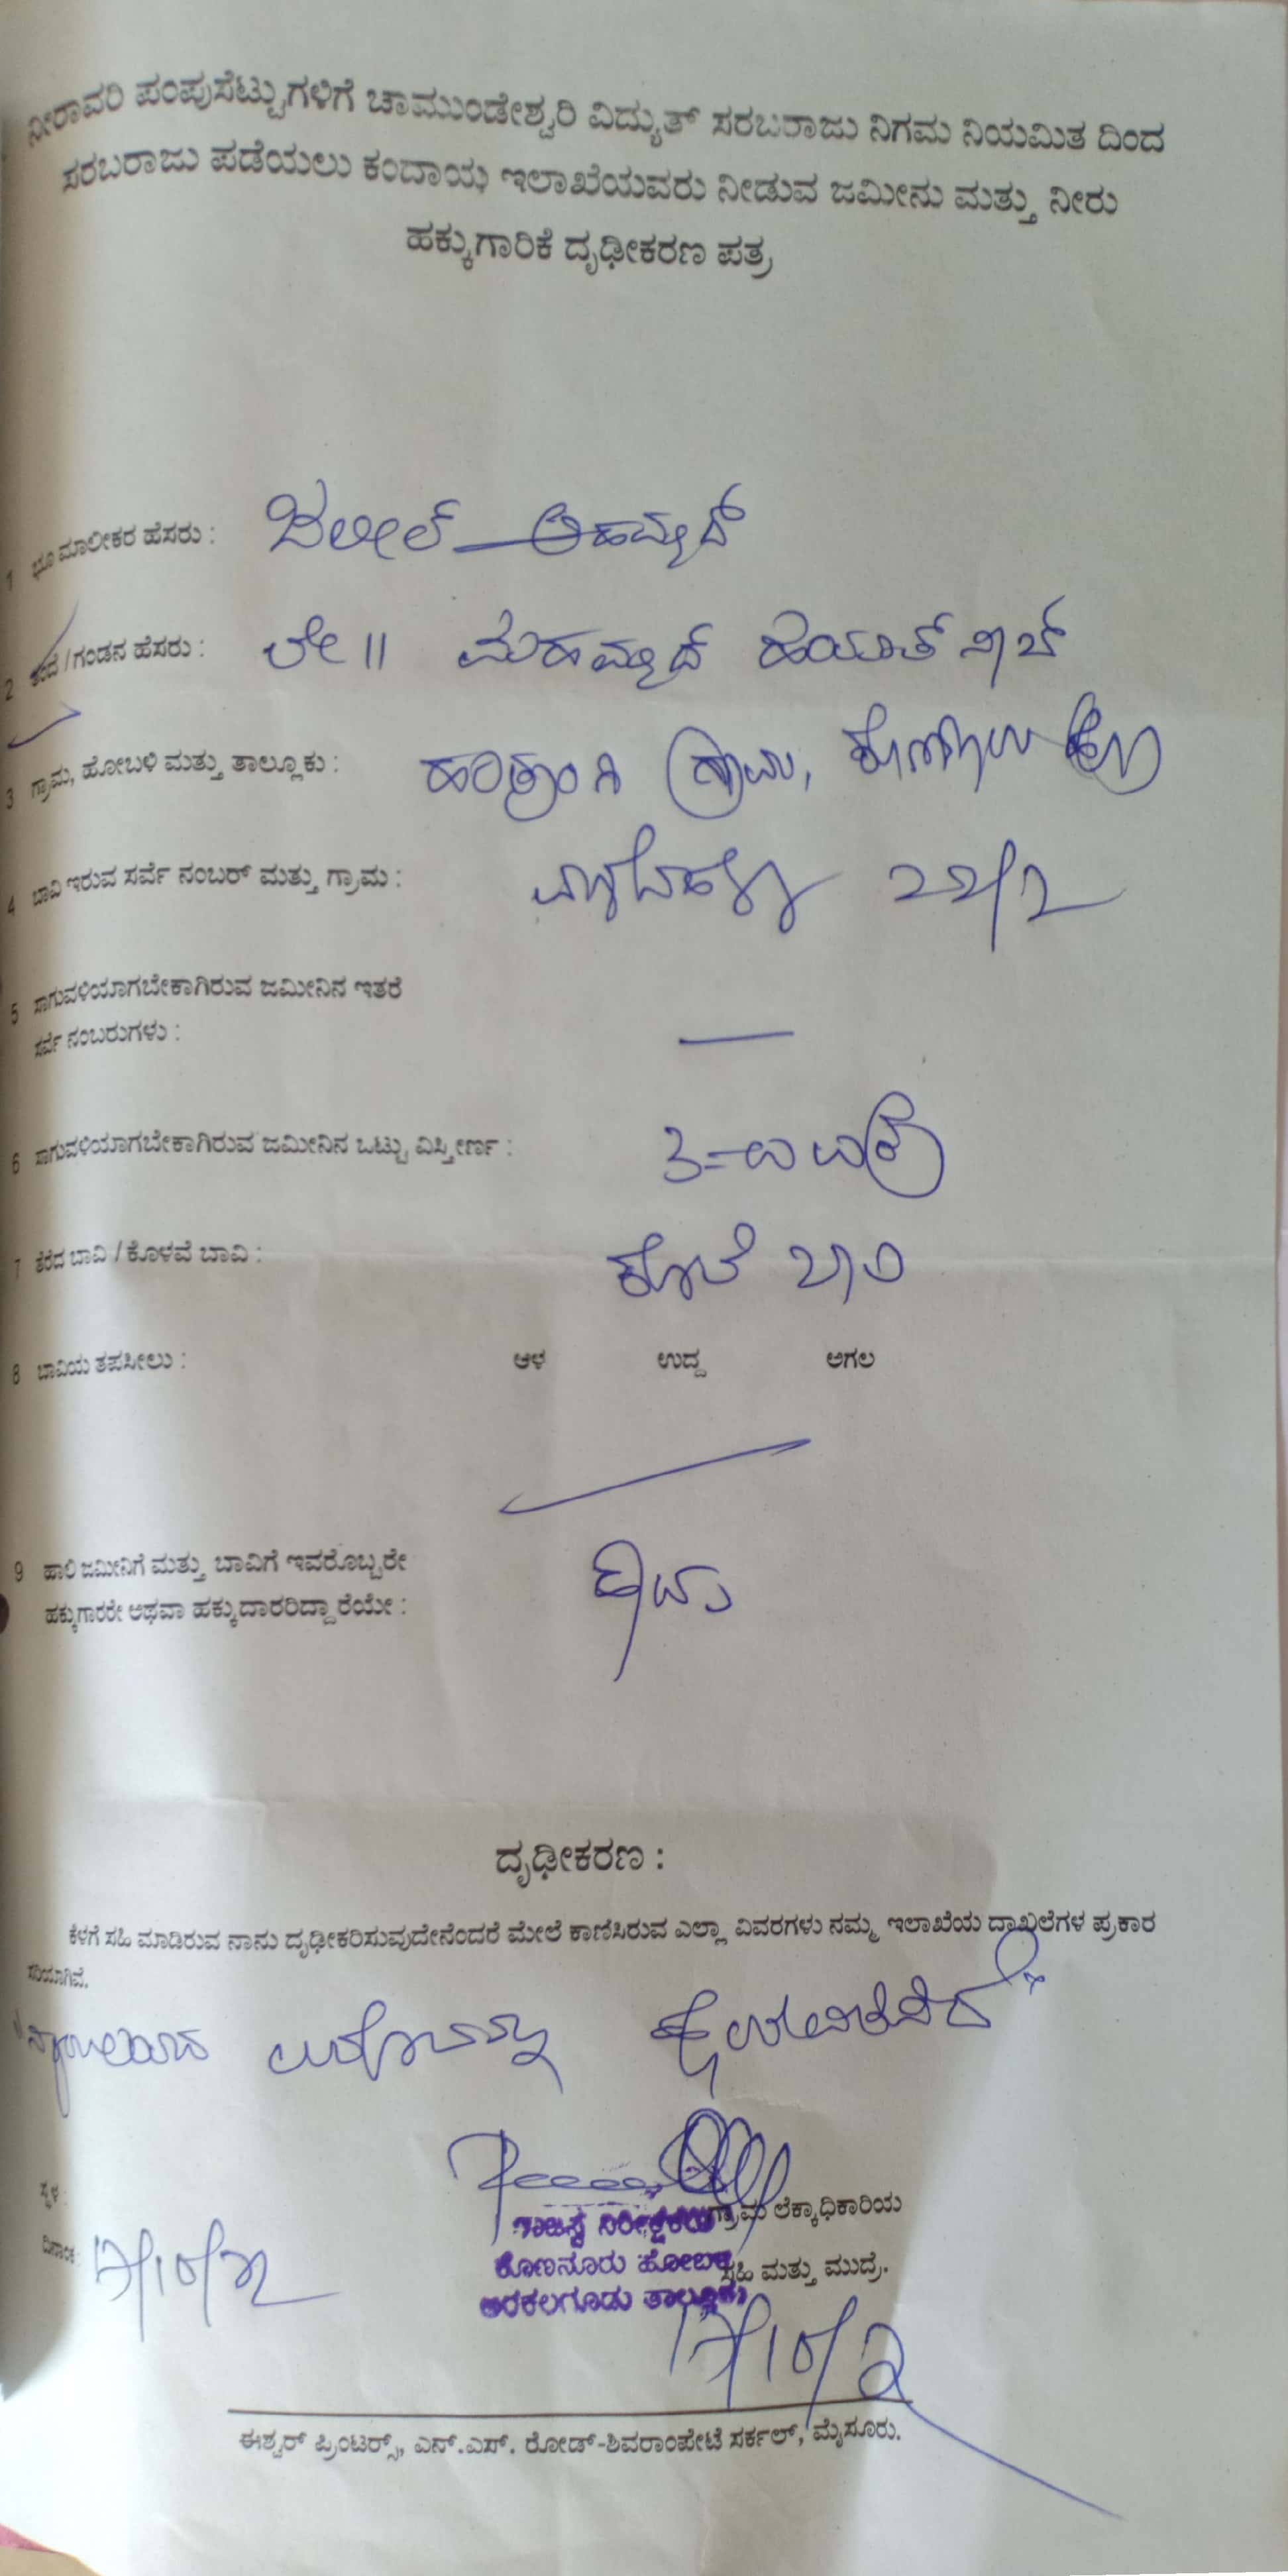 ನೀರಾವರಿ ಪಂಪುಸೆಟ್ಟುಗಳಿಗೆ ಚಾಮುಂಡೇಶ್ವರಿ ವಿದ್ಯುತ್ ಸರಬರಾಜು ನಿಗಮ ನಿಯಮಿತ ದಿಂದ
ಸರಬರಾಜು ಪಡೆಯಲು ಕಂದಾಯ ಇಲಾಖೆಯವರು ನೀಡುವ ಜಮೀನು ಮತ್ತು ನೀರು
ಹಕ್ಕುಗಾರಿಕೆ ದೃಢೀಕರಣ ಪತ್ರ
1 ಭೂ ಮಾಲೀಕರ ಹೆಸರು : ಜಲೀಲ್ ಅಹಮ್ಮದ್
2 ತಂದೆ /ಗಂಡನ ಹೆಸರು : ಲೇ॥ ಮೆಹಮ್ಮದ್ ಹಯಾತ್
3 ಗ್ರಾಮ, ಹೋಬಳಿ ಮತ್ತು ತಾಲ್ಲೂಕು : ಗ್ರಾಮ,
4 ಬಾವಿ ಇರುವ ಸರ್ವೆ ನಂಬರ್ ಮತ್ತು ಗ್ರಾಮ : 22/2
5 ಸಾಗುವಳಿಯಾಗಬೇಕಾಗಿರುವ ಜಮೀನಿನ ಇತರೆ
ಸರ್ವೆ ನಂಬರುಗಳು : —
6 ಸಾಗುವಳಿಯಾಗಬೇಕಾಗಿರುವ ಜಮೀನಿನ ಒಟ್ಟು ವಿಸ್ತೀರ್ಣ :
7 ತೆರೆದ ಬಾವಿ / ಕೊಳವೆ ಬಾವಿ : ಕೊಳವೆ ಬಾವಿ
8 ಬಾವಿಯ ತಪಸೀಲು : ಆಳ ಉದ್ದ ಅಗಲ
9 ಹಾಲಿ ಜಮೀನಿಗೆ ಮತ್ತು ಬಾವಿಗೆ ಇವರೊಬ್ಬರೇ
ಹಕ್ಕುಗಾರರೇ ಅಥವಾ ಹಕ್ಕುದಾರರಿದ್ದಾರೆಯೇ :
ದೃಢೀಕರಣ :
ಕೆಳಗೆ ಸಹಿ ಮಾಡಿರುವ ನಾನು ದೃಢೀಕರಿಸುವುದೇನೆಂದರೆ ಮೇಲೆ ಕಾಣಿಸಿರುವ ಎಲ್ಲಾ ವಿವರಗಳು ನಮ್ಮ ಇಲಾಖೆಯ ದಾಖಲೆಗಳ ಪ್ರಕಾರ
ಸರಿಯಾಗಿವೆ.
ಸ್ಥಳ :
ಗ್ರಾಮ ಲೆಕ್ಕಾಧಿಕಾರಿಯ
ರಾಜಸ್ವ ನಿರೀಕ್ಷಕರು
ದಿನಾಂಕ :
ಸಹಿ ಮತ್ತು ಮುದ್ರೆ.
ಕೊಣನೂರು ಹೋಬಳಿ
ಅರಕಲಗೂಡು ತಾಲ್ಲೂಕು
ಈಶ್ವರ್ ಪ್ರಿಂಟರ್ಸ್, ಎನ್.ಎಸ್. ರೋಡ್-ಶಿವರಾಂಪೇಟೆ ಸರ್ಕಲ್, ಮೈಸೂರು.